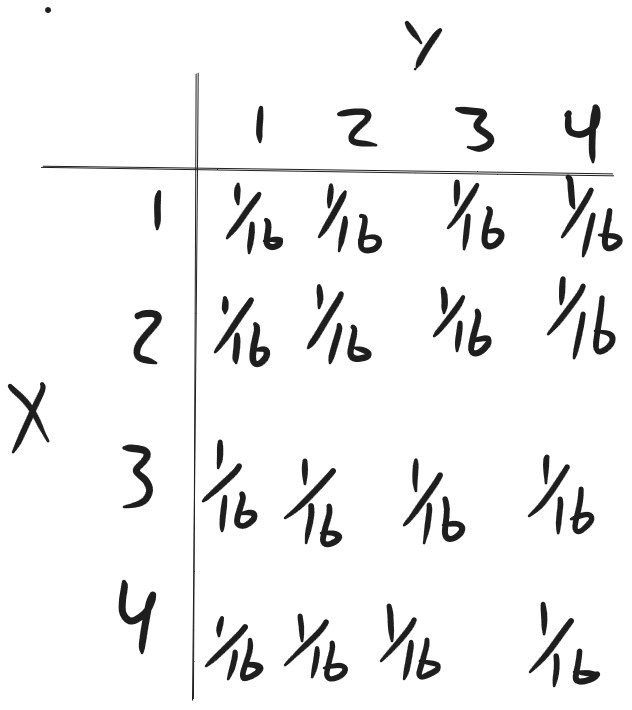 Y
1 2 3 4
1 1/16 1/16 1/16 1/16
2 1/16 1/16 1/16 1/16
X
3 1/16 1/16 1/16 1/16
4 1/16 1/16 1/16 1/16